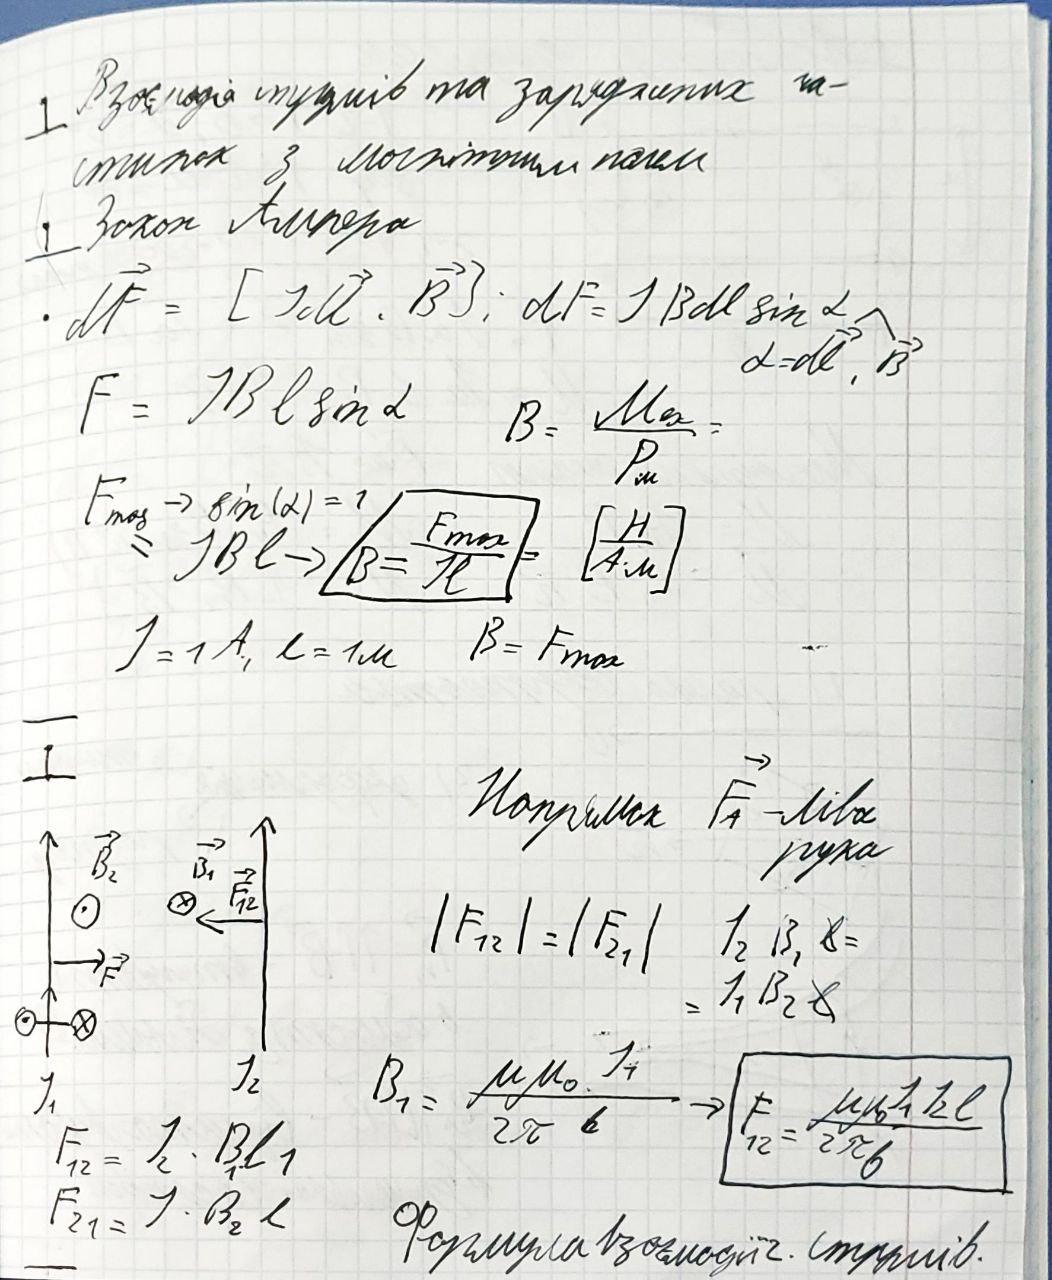 I Взаємодія струмів та заряджених ча-
стинок з магнітним полем
I Закон Ампера
• dF⃗ = [Jdl⃗ . B⃗]; dF = J B dl sin α
α = dl⃗, B⃗
F = J B l sin α B = Mmax / Pм =
Fmax → sin(α) = 1
= J B l → B = Fmax / Jl = [Н / А·м]
J = 1 A, l = 1м B = Fmax
I
Напрямок F⃗A - ліва
рука
B⃗2 B⃗1 F⃗12
|F12| = |F21| J2 B1 l =
= J1 B2 l
F⃗
J1 J2
B1 = μμ0 · J1 / 2π b → F12 = μμ0 J1 J2 l / 2π b
F12 = J2 · B1 l1
F21 = J · B2 l
Формула взаємодії 2. струмів.